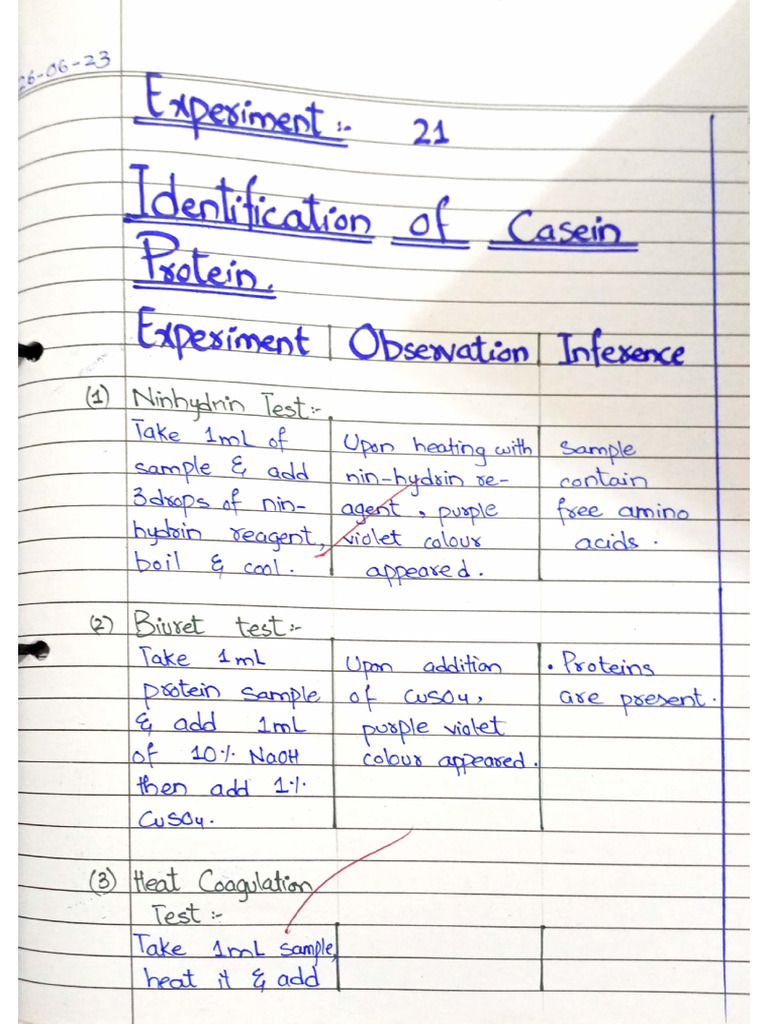 26-06-23
Experiment:- 21
Identification of Casein
Protein.
Experiment | Observation | Inference
(1) Ninhydrin Test:-
Take 1mL of
sample & add
3drops of nin-
hydrin reagent,
boil & cool.
Upon heating with
nin-hydrin re-
agent, purple
violet colour
appeared.
Sample
contain
free amino
acids.
(2) Biuret test:-
Take 1mL
protein sample
& add 1mL
of 10% NaOH
then add 1%
CuSO4.
Upon addition
of CuSO4,
purple violet
colour appeared.
• Proteins
are present.
(3) Heat Coagulation
Test:-
Take 1mL sample,
heat it & add